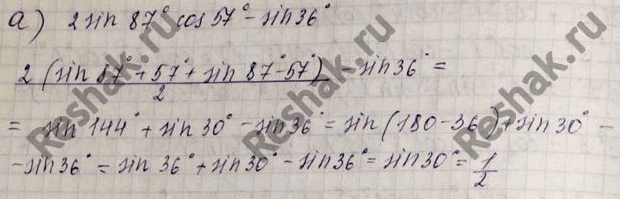 а) 2sin 87° cos 57° - sin 36°
2 (sin 87° + 57° + sin 87° - 57°) / 2 - sin 36° =
= sin 144° + sin 30° - sin 36° = sin(180 - 36) + sin 30° -
- sin 36° = sin 36° + sin 30° - sin 36° = sin 30° = 1/2
Reshak.ru
Reshak.ru
Reshak.ru
Reshak.ru